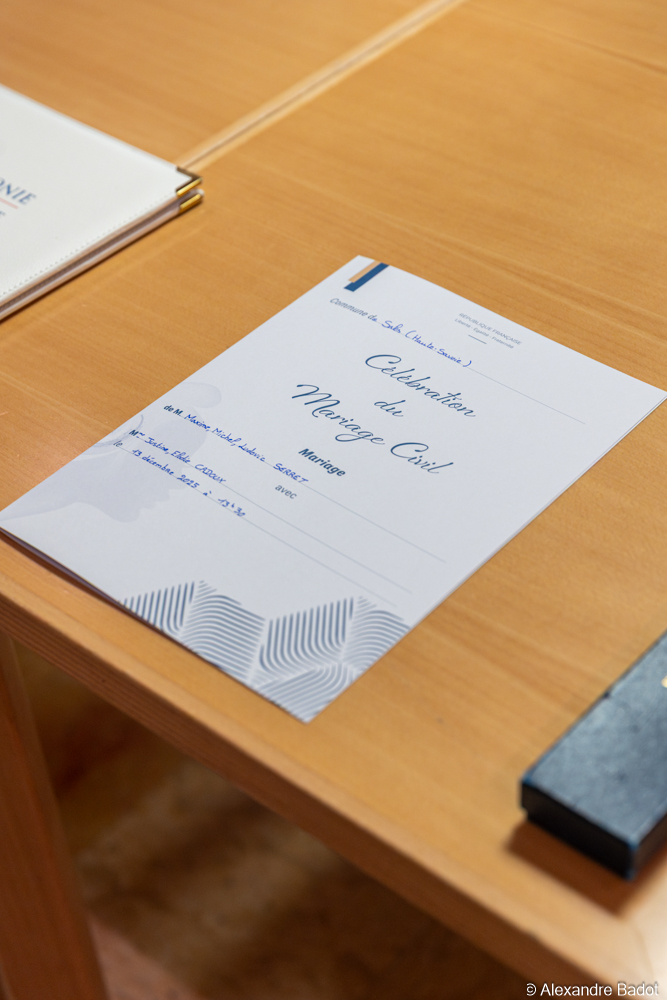 ONIE
RÉPUBLIQUE FRANÇAISE
Liberté - Égalité - Fraternité
Commune de Sales (Haute-Savoie)
Célébration
du
Mariage Civil
Mariage
de M. Maxime, Michel, Ludovic SERRET
avec
Mme Justine, Elodie CADOUX
le 13 décembre 2025 à 13h30
© Alexandre Badot